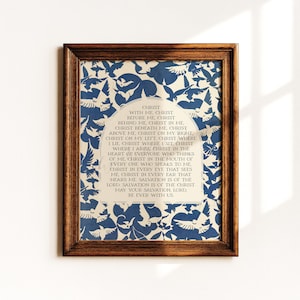 CHRIST
WITH ME, CHRIST
BEFORE ME, CHRIST
BEHIND ME, CHRIST IN ME,
CHRIST BENEATH ME, CHRIST
ABOVE ME, CHRIST ON MY RIGHT,
CHRIST ON MY LEFT, CHRIST WHERE
I LIE, CHRIST WHERE I SIT, CHRIST
WHERE I ARISE, CHRIST IN THE
HEART OF EVERYONE WHO THINKS
OF ME, CHRIST IN THE MOUTH OF
EVERY ONE WHO SPEAKS TO ME,
CHRIST IN EVERY EYE THAT SEES
ME, CHRIST IN EVERY EAR THAT
HEARS ME. SALVATION IS OF THE
LORD. SALVATION IS OF THE CHRIST.
MAY YOUR SALVATION, LORD,
BE EVER WITH US.